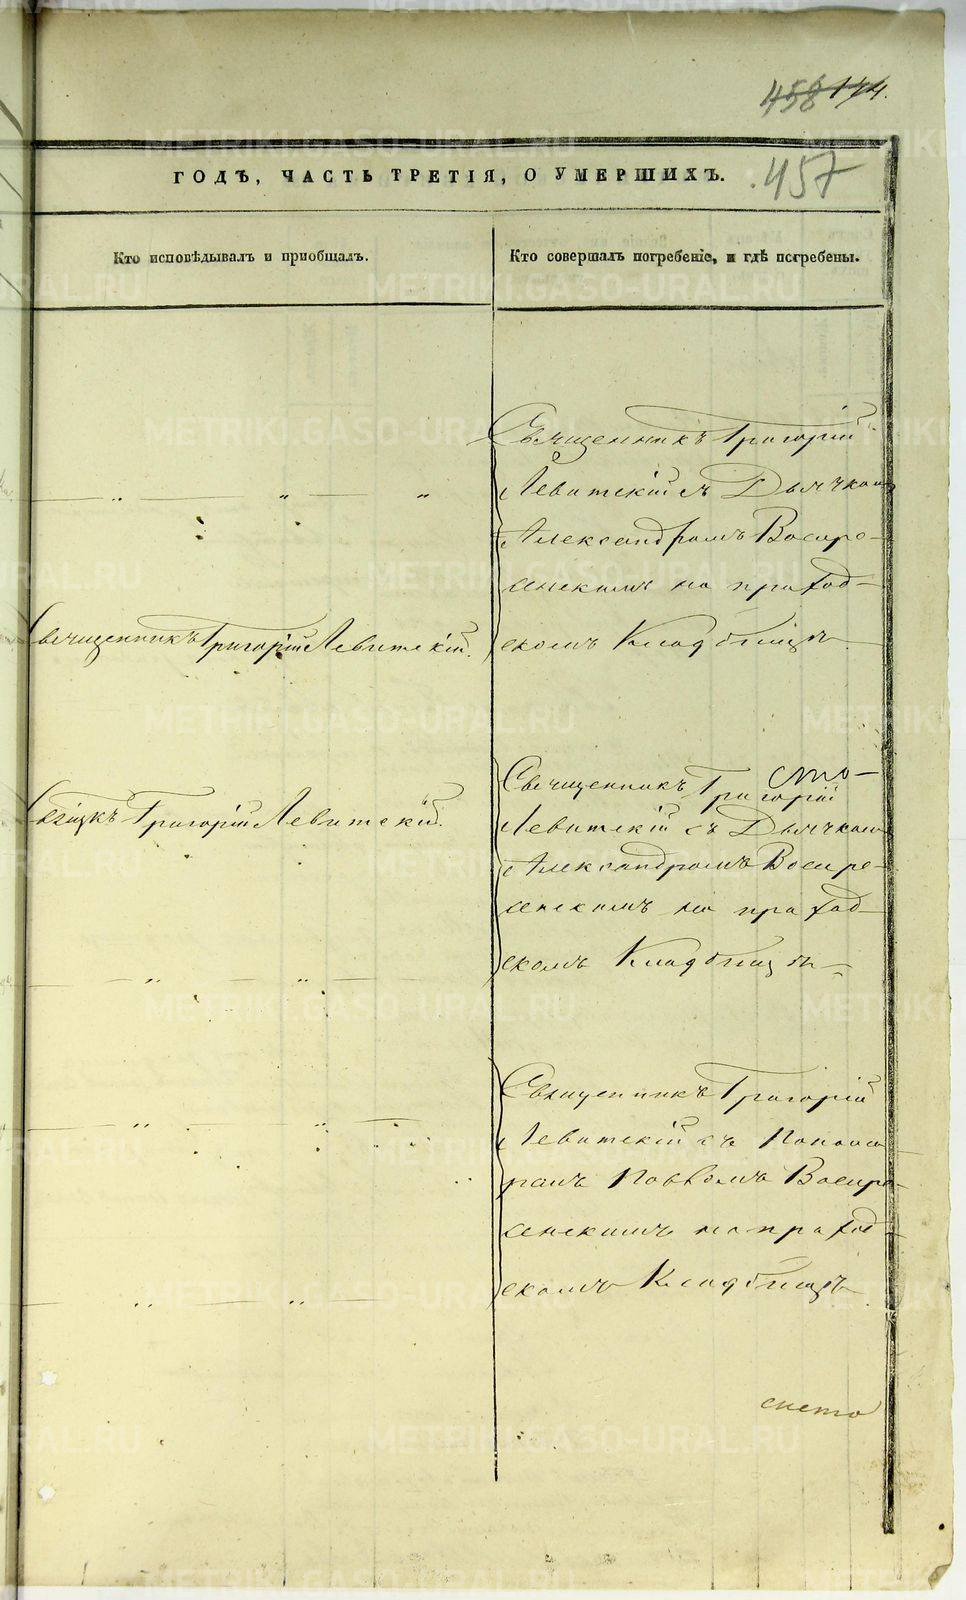 458 144.
457
ГОДѢ, ЧАСТЬ ТРЕТІЯ, О УМЕРШИХЪ.
Кто исповѣдывалъ и приобщалъ.
Кто совершалъ погребеніе, и гдѣ погребены.
Священникъ Григорій
Левитскій съ Дьячкомъ
Александромъ Воскре-
сенскимъ на приход-
скомъ Кладбищѣ
Священникъ Григорій Левитскій.
Священникъ Григорій
Левитскій съ Дьячкомъ
Александромъ Воскре-
сенскимъ на приход-
скомъ Кладбищѣ
Свщкъ Григорій Левитскій.
Священникъ Григорій
Левитскій съ Понома
ремъ Павломъ Воскре-
сенскимъ на приход-
скомъ Кладбищѣ
METRIKI.GASO-URAL.RU